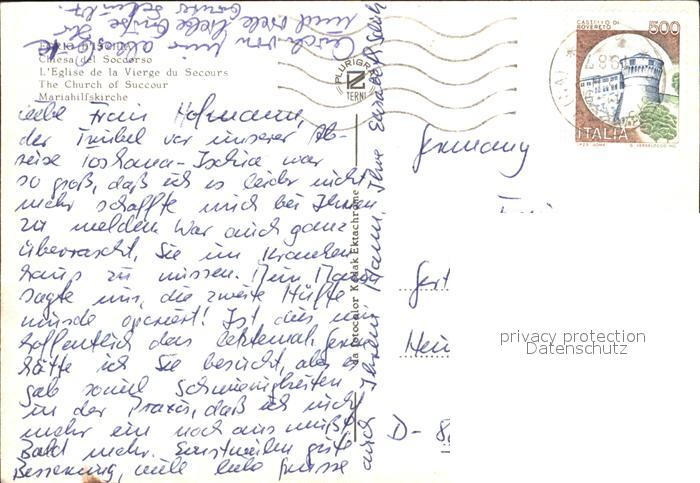 Chiesa del Soccorso
L'Eglise de la Vierge du Secours
The Church of Succour
Mariahilfskirche
Liebe Frau Hofmann,
der Trubel vor unserer Ab-
reise Toskana-Ischia war
so groß, daß ich es leider nicht
mehr schaffte mich bei Ihnen
zu melden. War auch ganz
überrascht, Sie im Kranken
haus zu wissen. Mein Mann
sagte mir, die zweite Hüfte
würde operiert! Ist dies nun
hoffentlich das letztemal. Gerne
hätte ich Sie besucht, aber es
gab soviel Schwierigkeiten
in der Praxis, daß ich nicht
mehr ein noch aus wußte.
Bald mehr. Einstweilen gute
Besserung, viele liebe Grüsse
auch Ihrem Mann, Ihre Elisabeth
und viele liebe Grüße
PLURIGRAF
TERNI
da fotocolor Kodak Ektachrome
CASTELLO DI
ROVERETO
500
ITALIA
Germany
D-
privacy protection
Datenschutz